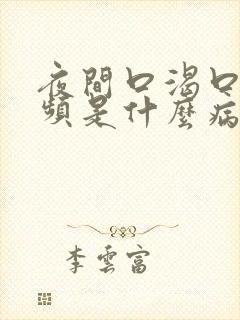 夜間口渴口
頻是什麼病
李雲富